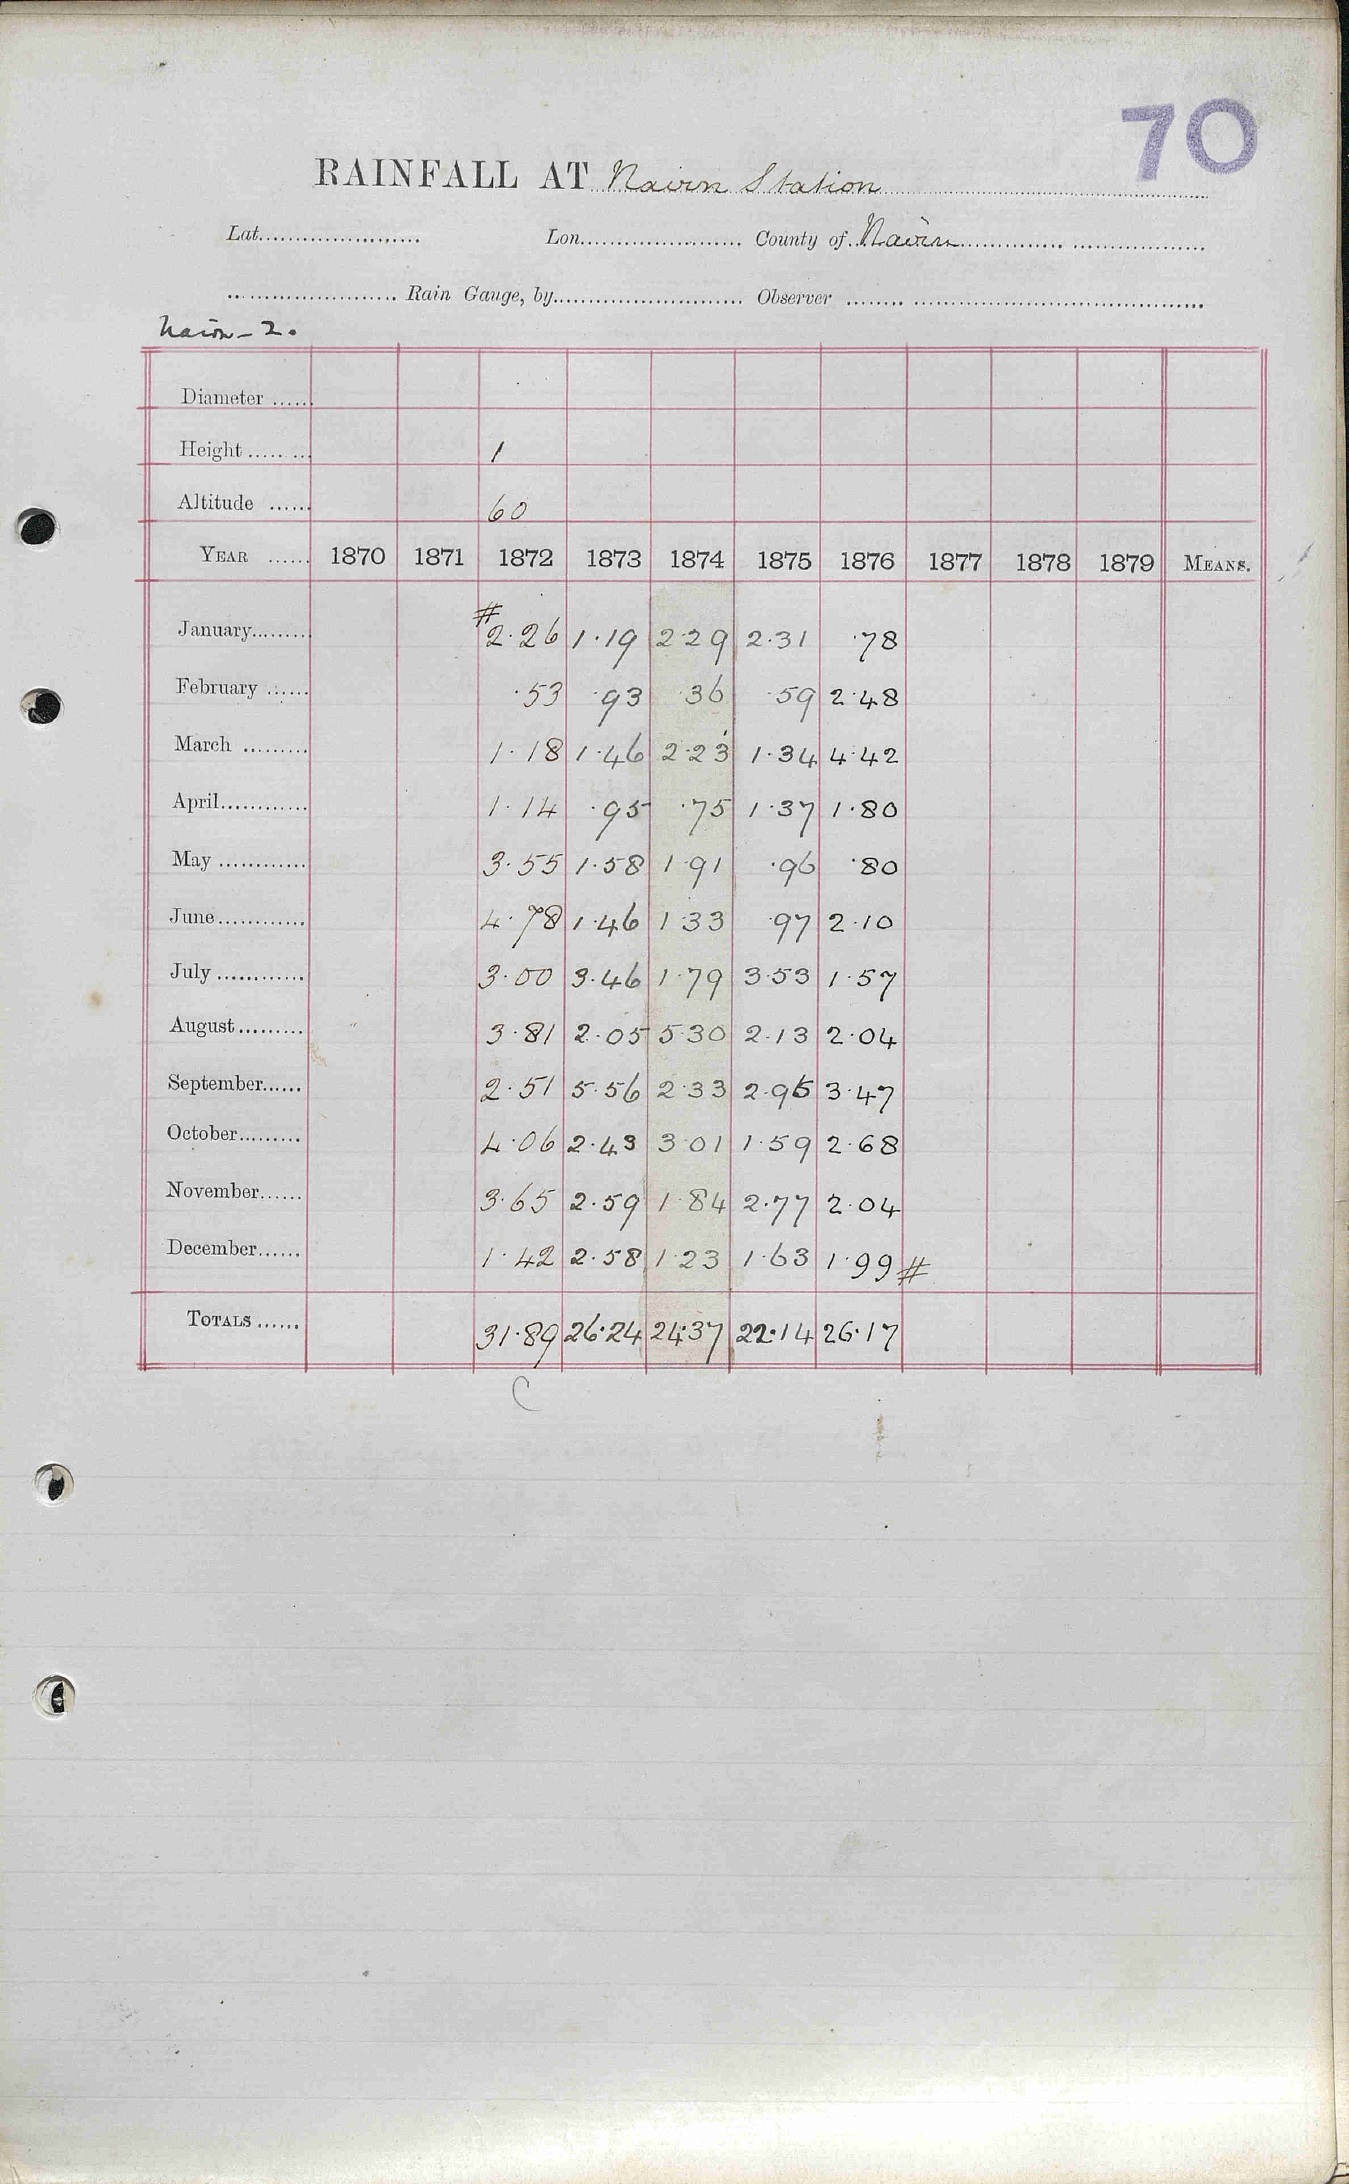 70
RAINFALL AT Nairn Station
Lat. Lon. County of Nairn
Rain Gauge, by Observer
Nairn - 2.
Diameter
Height 1
Altitude 60
YEAR 1870 1871 1872 1873 1874 1875 1876 1877 1878 1879 MEANS.
January # 2.26 1.19 2.29 2.31 .78
February .53 .93 .36 .59 2.48
March 1.18 1.46 2.23 1.34 4.42
April 1.14 .95 .75 1.37 1.80
May 3.55 1.58 1.91 .96 .80
June 4.78 1.46 1.33 .97 2.10
July 3.00 3.46 1.79 3.53 1.57
August 3.81 2.05 5.30 2.13 2.04
September 2.51 5.56 2.33 2.95 3.47
October 4.06 2.43 3.01 1.59 2.68
November 3.65 2.59 1.84 2.77 2.04
December 1.42 2.58 1.23 1.63 1.99 #
TOTALS 31.89 26.24 24.37 22.14 26.17
C